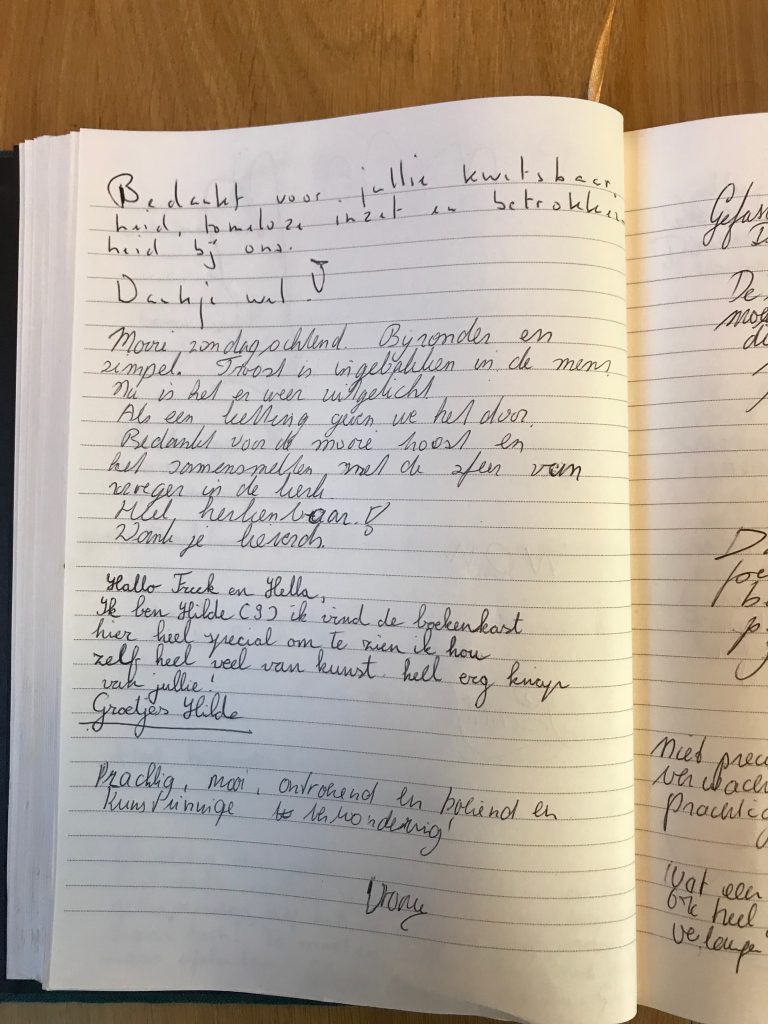 Bedankt voor jullie kwetsbaar-
heid, tomeloze inzet en betrokken
heid bij ons.
Dankje wel!
Mooie zondagochtend. Bijzonder en
simpel. Troost is ingebakken in de mens
Nu is het er weer uitgelicht
Als een ketting geven we het door.
Bedankt voor de mooie troost en
het samensmelten met de sfeer van
vroeger in de kerk
Heel herkenbaar!
Dank je
Hallo Freek en Hella,
Ik ben Hilde (9) ik vind de boekenkast
hier heel special om te zien ik hou
zelf heel veel van kunst. hell erg knap
van jullie!
Groetjes Hilde
Prachtig, mooi, ontroerend en boeiend en
Kunstzinnige verwondering!
Gefas
De
moe
di
D
b
p
niet prec
verwach
prachtig
Wat een
ook heel
verlange